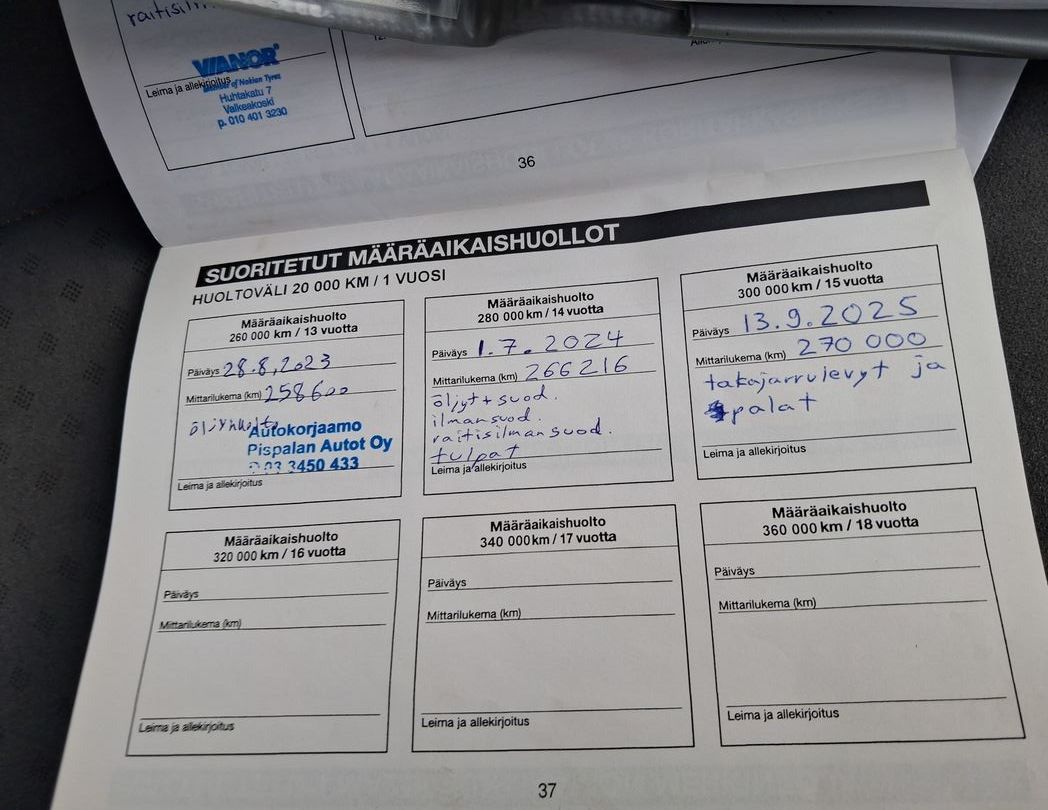 raitisil
VIANOR
Leima ja allekirjoitus
Member of Nokian Tyres
Huhtakatu 7
Valkeakoski
p. 010 401 3230
36
SUORITETUT MÄÄRÄAIKAISHUOLLOT
HUOLTOVÄLI 20 000 KM / 1 VUOSI
Määräaikaishuolto
260 000 km / 13 vuotta
Päiväys 28.8.2023
Mittarilukema (km) 258600
öljynhuolto
Autokorjaamo
Pispalan Autot Oy
03 3450 433
Leima ja allekirjoitus
Määräaikaishuolto
280 000 km / 14 vuotta
Päiväys 1.7.2024
Mittarilukema (km) 266216
öljyt + suod.
ilmansuod.
raitisilmansuod.
tulpat
Leima ja allekirjoitus
Määräaikaishuolto
300 000 km / 15 vuotta
Päiväys 13.9.2025
Mittarilukema (km) 270 000
takajarrulevyt ja
palat
Leima ja allekirjoitus
Määräaikaishuolto
320 000 km / 16 vuotta
Päiväys
Mittarilukema (km)
Leima ja allekirjoitus
Määräaikaishuolto
340 000 km / 17 vuotta
Päiväys
Mittarilukema (km)
Leima ja allekirjoitus
Määräaikaishuolto
360 000 km / 18 vuotta
Päiväys
Mittarilukema (km)
Leima ja allekirjoitus
37